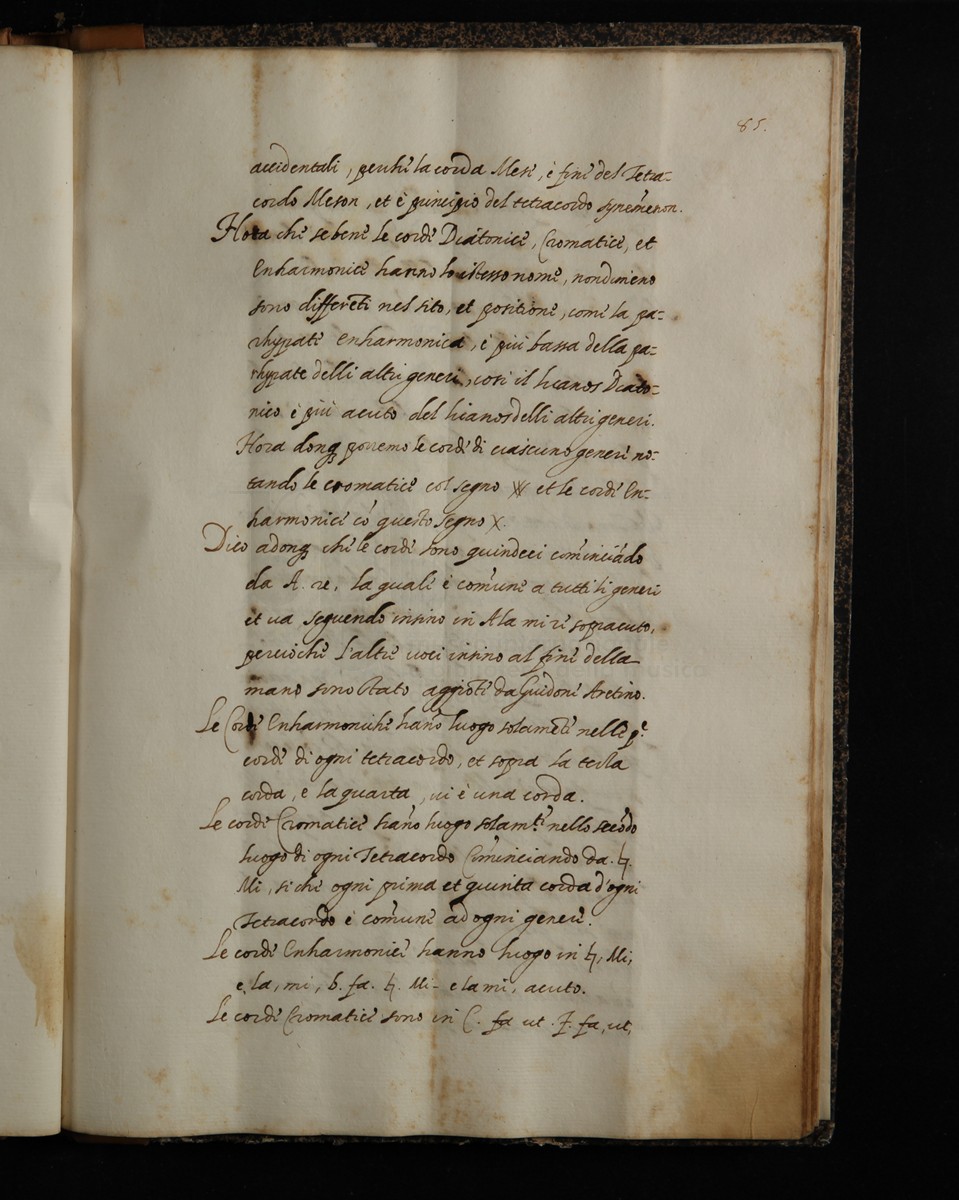 85.
accidentali, perche la corda Mese, è fine del Tetra-
cordo Meson, et è principio del tetracordo synemenon.
Hora che se bene le corde Diatonice, Cromatice, et
Enharmonice hanno lo istesso nome, nondimeno
sono differēti nel sito, et positione, come la pa-
rhypate enharmonica, è piu bassa della pa-
rhypate delli altri generi, cosi il licanos Diato-
nico è piu acuto del licanos delli altri generi.
Hora donq porremo le corde di ciascuno genere no-
tando le cromatice col segno ※ et le corde En-
harmonice cō questo segno X.
Dico adonq che le corde sono quindeci cominciādo
da A. re, la quale è comune a tutti li generi
et va seguendo insino in A la mi re sopracuto,
percioche l'altre voci insino al fine della
mano sono stato aggiōte da Guidone Aretino.
Le Corde Enharmoniche hano luogo solamēte nelle p.e
corde di ogni tetracordo, et sopra la terza
corda, e la quarta, vi è una corda.
Le corde Cromatice hano luogo solam.te nello secōdo
luogo di ogni Tetracordo Cominciando da. ♮.
Mi, si che ogni prima et quinta corda d'ogni
Tetracordo è comune ad ogni genere.
Le corde Enharmonice hanno luogo in ♮, Mi,
e, la, mi, b. fa. ♮. Mi- e la mi, acuto.
Le corde Cromatice sono in C. fa ut. F. fa, ut,